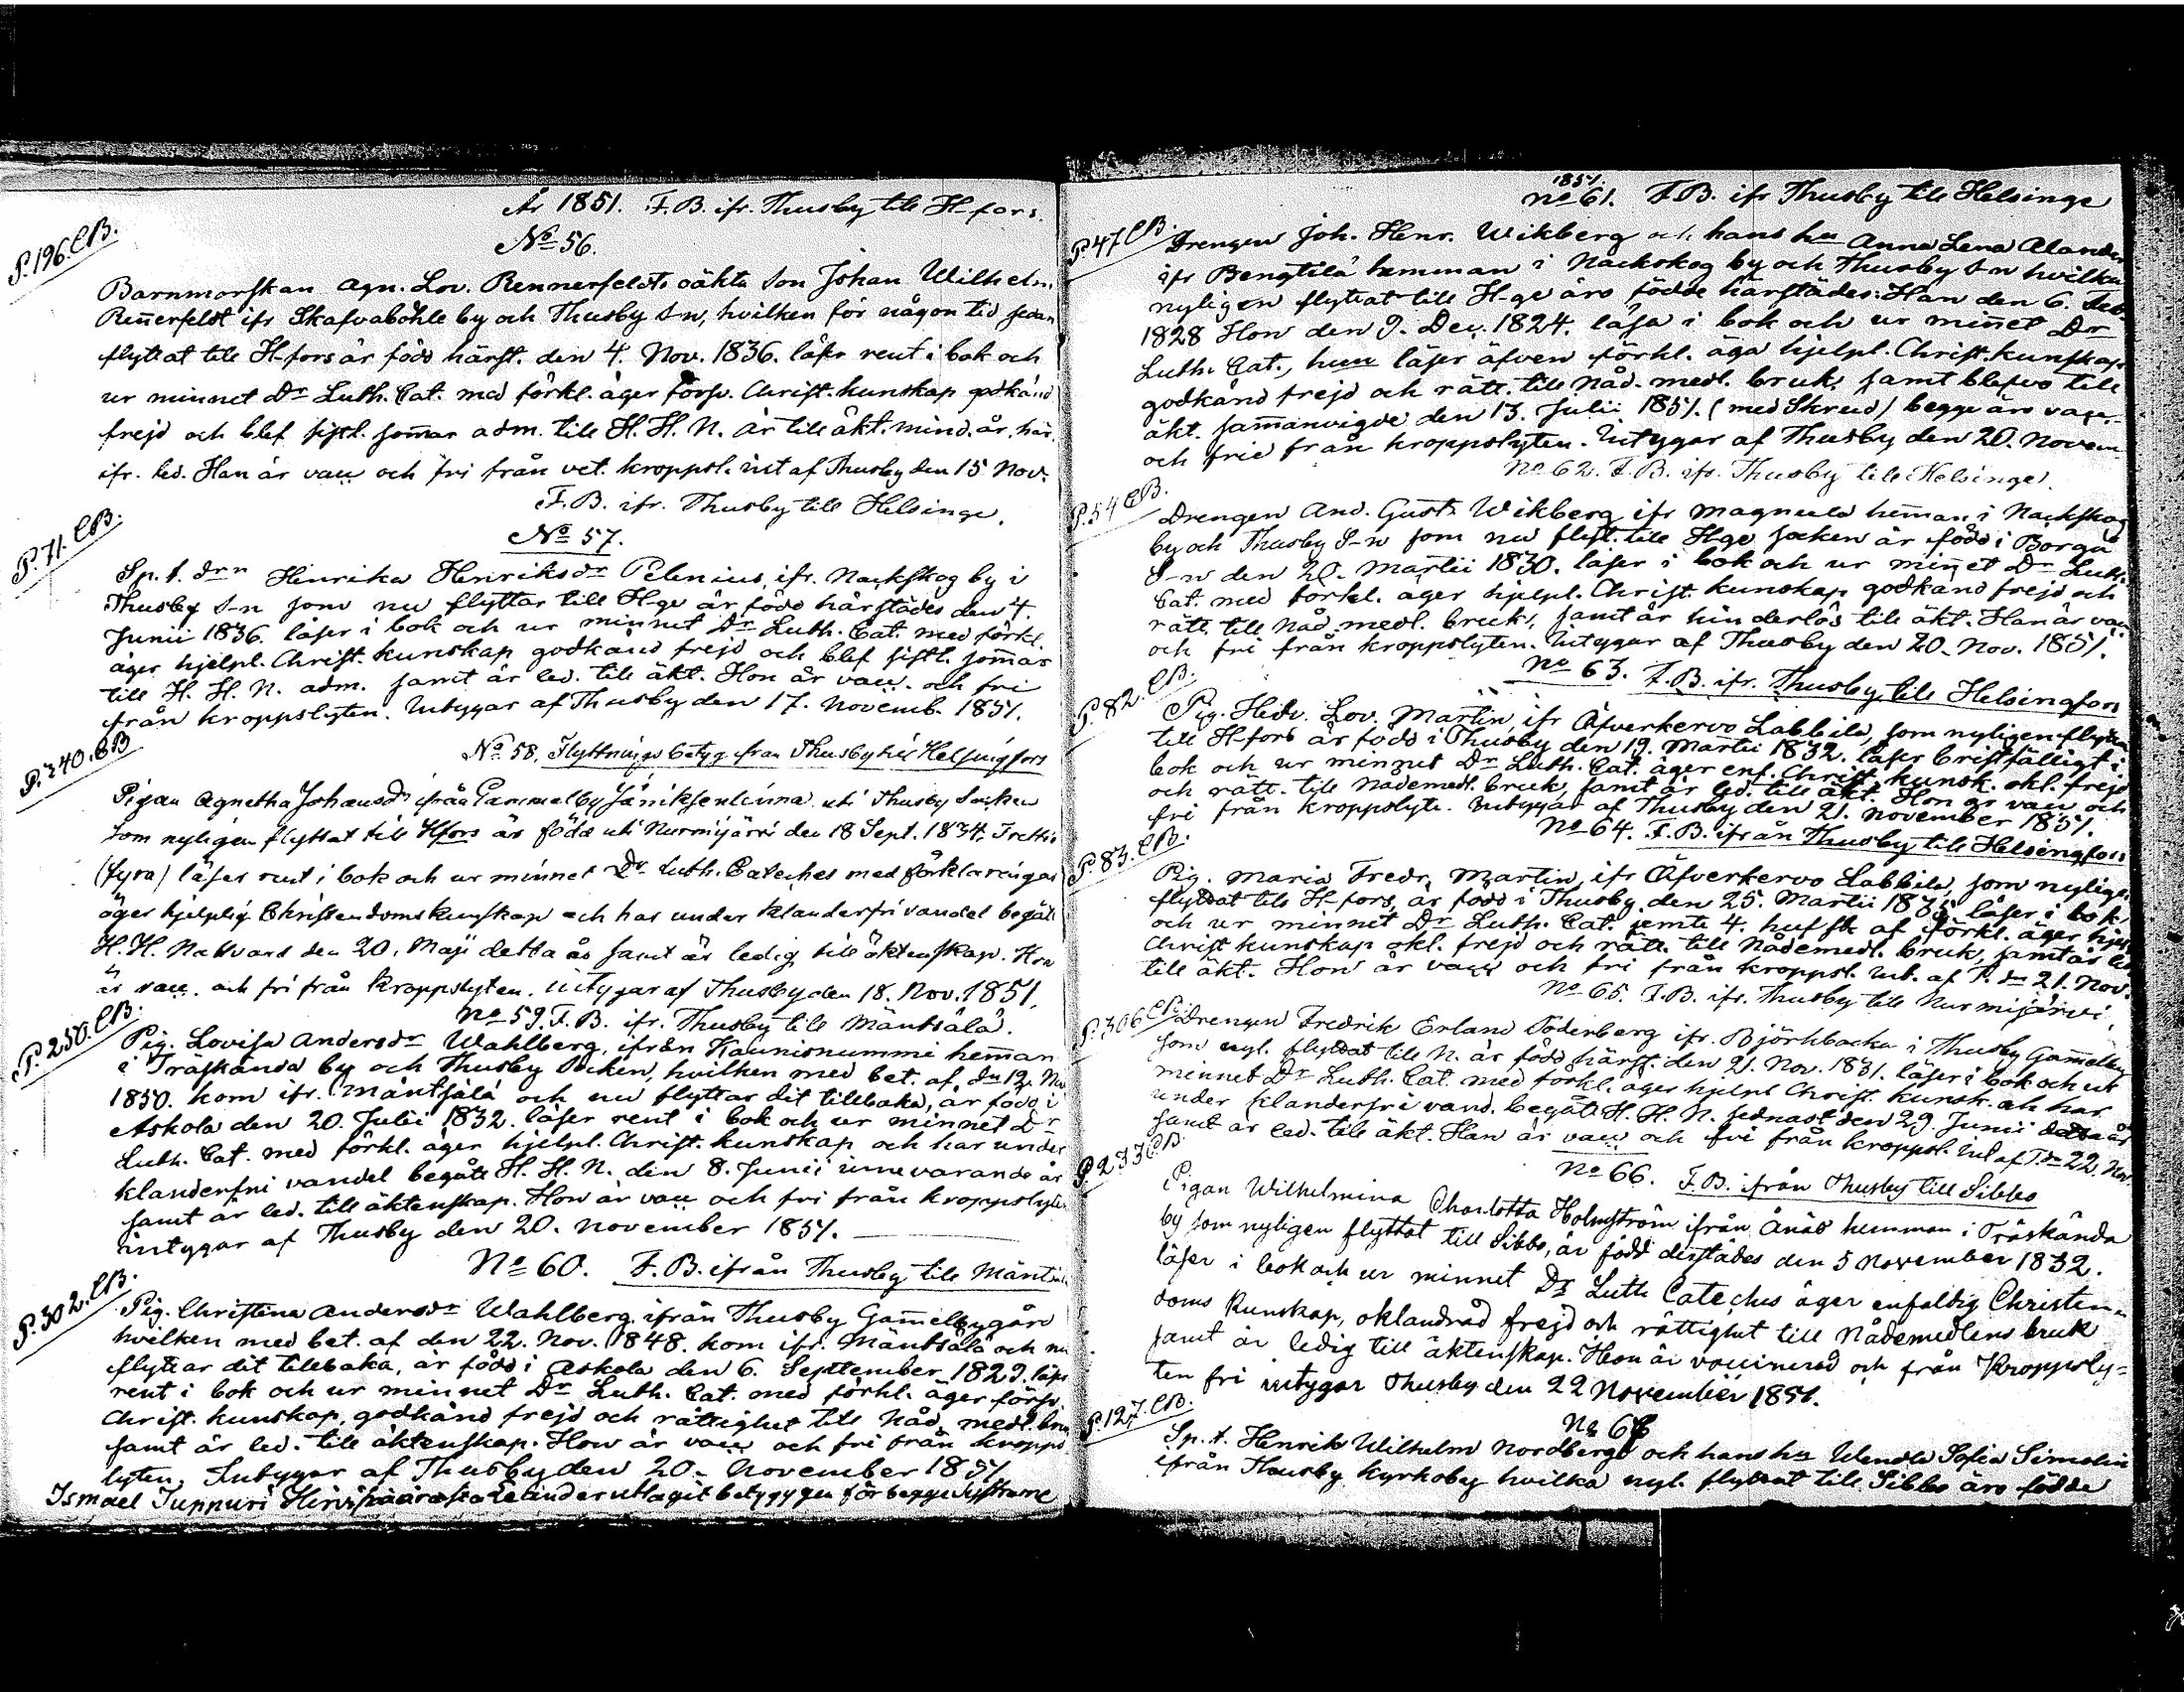 År 1851. F.B. ifr. Thusby till H-fors.
No 56.
P. 196. CB.
Barnmorskan Agn. Lov. Rennerfeldts oäkta son Johan Wilhelm
Reñerfeldt ifr Skafvaböhle by och Thusby S-n, hvilken för någon tid sedan
flyttat till H-fors är född härst. den 4. Nov. 1836. läser rent i bok och
ur minnet Dr Luth. Cat. med förkl. äger försv. Christ. kunskap godkänd
frejd och blef sistl. som̃ar adm. till H. H. N. Är till äkt. mind. år. här.
ifr. led. Han är vacc och fri från vet. kroppsl. int af Thusby den 15 Nov.
F.B. ifr. Thusby till Helsinge.
No 57.
P. 71. CB.
Sp. t. drn Henrika Henriksdr Pelenius, ifr. Nackskog by i
Thusby S-n som nu flyttar till H-ge är född härstädes den 4.
Junii 1836. läser i bok och ur minnet Dr Luth. Cat. med förkl.
äger hjelpl. Christ. kunskap godkänd frejd och blef sistl. som̃ar
till H. H. N. adm. samt är led. till äkt. Hon är vacc. och fri
från kroppslyten. Intygar af Thusby den 17. Novemb. 1851.
No 58. Flyttnings betyg från Thusby till Helsingfors
P. 240. CB
Pigan Agnetha Johansdr ifrån Gammelby Jäniksenlinna uti Thusby Socken
som nyligen flyttat till Hfors är född uti Nurmijärvi den 18 Sept. 1834. Trettio
(fyra) läser rent i bok och ur minnet Dr Luth. Cateches med förklaringar
äger hjelplig Christendomskunskap och har under klanderfri vandel begått
H. H. Nattvard den 20. Maji detta år samt är ledig till äktenskap. Hon
är vacc. och fri från kroppslyten. Intygar af Thusby den 18. Nov. 1851.
No 59. F.B. ifr. Thusby till Mäntsälä.
P. 250. CB.
Pig. Lovisa Andersdr Wahlberg, ifrån Kaunisnummi hem̃an
i Träskända by och Thusby Socken, hvilken med bet. af dn 12. Nov
1850. kom ifr. Mäntsälä och nu flyttar dit tillbaka, är född i
Askola den 20. Julii 1832. läser rent i bok och ur minnet Dr
Luth. Cat. med förkl. äger hjelpl. Christ. kunskap och har under
klanderfri vandel begått H. H. N. den 8. Junii innevarande år
samt är led. till äktenskap. Hon är vacc och fri från kroppslyten
intygar af Thusby den 20. November 1851.
No 60. F.B. ifrån Thusby till Mäntsälä
P. 302. CB.
Pig. Christina Andersdr Wahlberg ifrån Thusby Gam̃elbygård
hvilken med bet. af den 22. Nov. 1848. kom ifr. Mäntsälä och nu
flyttar dit tillbaka, är född i Askola den 6. September 1829. läser
rent i bok och ur minnet Dr Luth. Cat. med förkl. äger försv.
Christ. kunskap, godkänd frejd och rättighet till Nåd. medl. bruk
samt är led. till äktenskap. Hon är vacc och fri från kropps
lyten. Intygar af Thusby den 20. November 1851.
Ismael Juppuri uttagit betygen för begge systrarne
1851.
No 61. F.B. ifr Thusby till Helsinge
P. 47 CB.
Drengen Joh. Henr. Wikberg och hans hu Anna Lena Alander
ifr Bengtilä hemman i Nackskog by och Thusby S-n hvilka
nyligen flyttat till H-ge äro födde härstädes: Han den 6.
1828 Hon den 9. Dec. 1824. läsa i bok och ur miñet Dr
Luth. Cat., hun läser äfven förkl. äga hjelpl. Christ. kunskap
godkänd frejd och rätt. till nåd. medl. bruk, samt blefvo till
äkt. sam̃anvigde den 13. Julii 1851. (med Skrud) begge äro vacc.
och frie från kroppslyten. Intygar af Thusby den 20. Novem
No 62. F.B. ifr. Thusby till Helsinge.
P. 54 CB.
Drengen And. Gust. Wikberg ifr Magnula hem̃an i Nackskog
by och Thusby S-n som nu flytt. till H-ge socken är född i Borgå
S-n den 20. Martii 1830. läser i bok och ur miñet Dr Luth.
Cat. med förkl. äger hjelpl. Christ. kunskap godkänd frejd och
rätt. till Nåd. medl. bruk, samt är hinderlös till äkt. Han är vacc
och fri från kroppslyten. Intygar af Thusby den 20. Nov. 1851.
No 63. F.B. ifr. Thusby till Helsingfors
P. 82. CB.
Pig. Hedv. Lov. Martin, ifr Äfverkervo Labbila, som nyligen flyttat
till H-fors är född i Thusby den 19. Martii 1832. läser bristfälligt i
bok och ur minnet Dr Luth. Cat. äger enf. Christ. kunsk. okl. frejd
och rätt. till Nådemedl. bruk, samt är led. till äkt. Hon är vacc och
fri från kroppslyte. Intygar af Thusby den 21. November 1851.
No 64. F.B. ifrån Thusby till Helsingfors
P. 83. CB.
Pig. Maria Fredr. Martin, ifr Äfverkervo Labbila, som nyligen
flyttat till H-fors, är född i Thusby den 25. Martii läser i bok
och ur minnet Dr Luth. Cat. jemte 4. huf st. af förkl. äger hjelpl
Christ kunskap okl. frejd och rätt. till Nådemedl. bruk, samt är led
till äkt. Hon är vacc och fri från kroppsl. Int. af T. dn 21. Nov.
No 65. F.B. ifr. Thusby till Nurmijärvi.
P. 306 CB.
Drengen Fredrik Erland Söderberg ifr. Björkbacka i Thusby Gam̃elby
som nyl. flyttat till N. är född härst. den 21. Nov. 1831. läser i bok och ur
minnet Dr Luth. Cat. med förkl. äger hjelpl Christ. kunsk. och har
under klanderfri vand. begått H. H. N. sednast den 29. Junii detta år
samt är led. till äkt. Han är vacc och fri från kroppsl. Int af T. dn 22. Nov.
No 66. F.B. ifrån Thusby till Sibbo
P 233 CB
Pigan Wilhelmina Charlotta Holmström ifrån Ånäs hemman i Träskända
by som nyligen flyttat till Sibbo, är född derstädes den 5 November 1832.
läser i bok och ur minnet Dr Luth Cateches äger enfaldig Christen-
doms kunskap, oklandrad frejd och rättighet till Nådemedlens bruk
samt är ledig till äktenskap. Hon är vaccinerad och från kroppsly-
ten fri intygar Thusby den 22 November 1851.
No 67
P. 127. CB.
Sp. t. Henrik Wilhelm Nordberg och hans hu Wendla Sofia Simolin
ifrån Thusby Kyrkoby hvilka nyl. flyttat till Sibbo äro födde